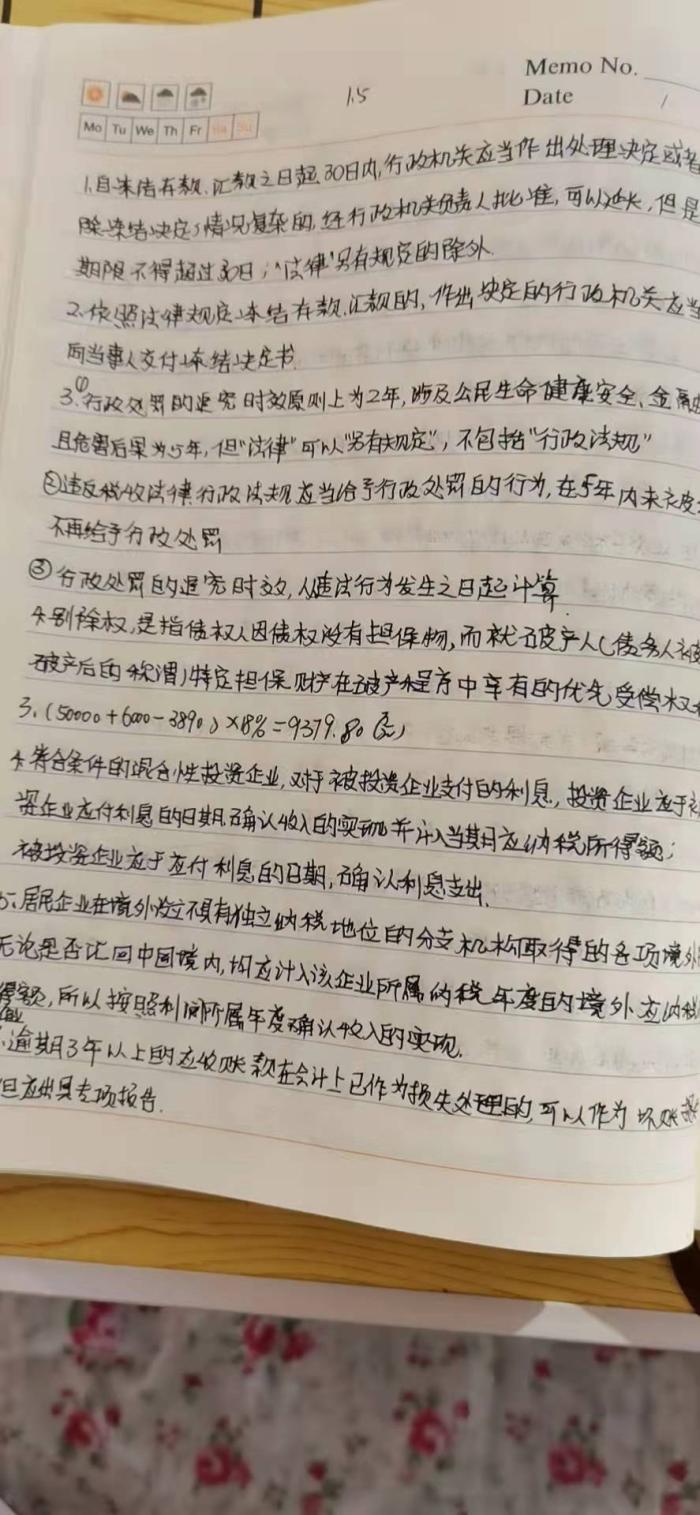 Memo No.
1.5
Date /
Mo Tu We Th Fr Sa Su
1.自冻结存款、汇款之日起30日内,行政机关应当作出处理决定或者
除冻结决定;情况复杂的,经行政机关负责人批准,可以延长,但是
期限不得超过30日;"法律"另有规定的除外.
2.依照法律规定冻结存款、汇款的,作出决定的行政机关应当
向当事人交付冻结决定书.
3.①行政处罚的追究时效原则上为2年,涉及公民生命健康安全、金融
且危害后果为5年,但"法律"可以"另有规定",不包括"行政法规"
②违反税收法律、行政法规应当给予行政处罚的行为,在5年内未被
不再给予行政处罚
③行政处罚的追究时效,从违法行为发生之日起计算.
4.别除权,是指债权人因债权设有担保物,而就破产人(债务人被
破产后的称谓)特定担保财产在破产程序中享有的优先受偿权
3.(50000+6000-3890)×18%=9379.80(元)
4.符合条件的混合性投资企业,对于被投资企业支付的利息,投资企业应于
资企业应付利息的日期,确认收入的实现并计入当期应纳税所得额;
被投资企业应于应付利息的日期,确认利息支出.
5.居民企业在境外设立不具有独立纳税地位的分支机构取得的各项境外
无论是否汇回中国境内,均应计入该企业所属纳税年度的境外应纳税
得额,所以按照利润所属年度确认收入的实现.
企业
.逾期3年以上的应收账款在会计上已作为损失处理的,可以作为坏账
但应出具专项报告.